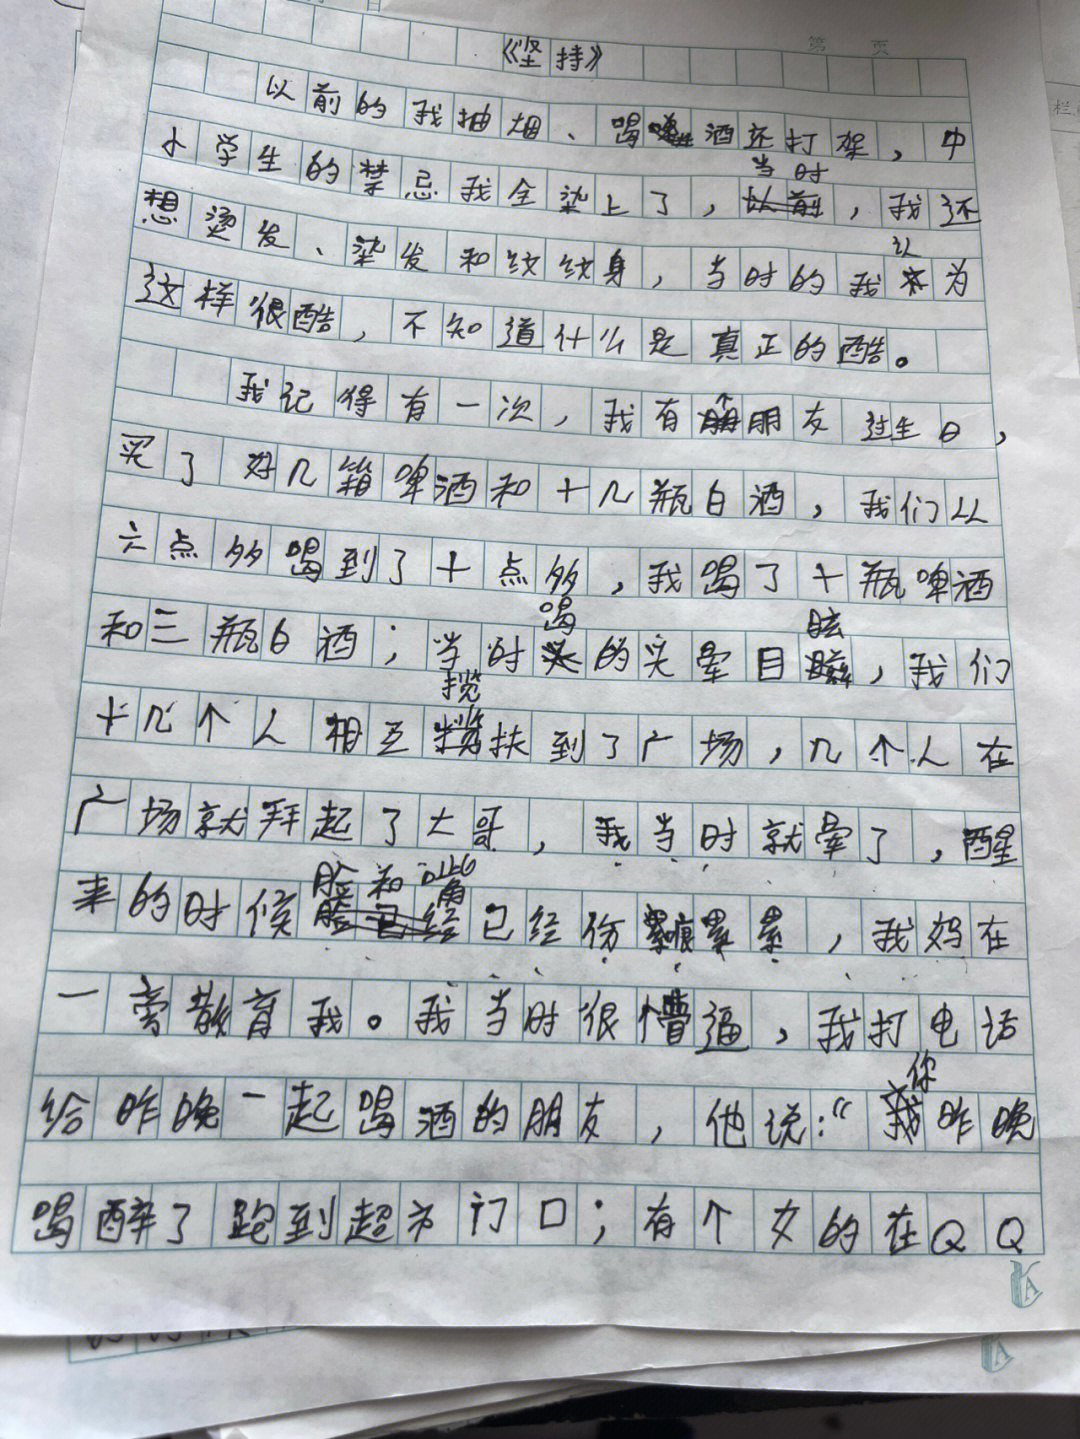 第 页
《坚持》
以前的我抽烟、喝酒还打架，中
小学生的禁忌我全染上了，当时，我还
想烫发、染发和纹纹身，当时的我认为
这样很酷，不知道什么是真正的酷。
我记得有一次，我有个朋友过生日，
买了好几箱啤酒和十几瓶白酒，我们从
六点多喝到了十点多，我喝了十瓶啤酒
和三瓶白酒；当时喝的头晕目眩，我们
十几个人相互揽扶到了广场，几个人在
广场就拜起了大哥，我当时就晕了，醒
来的时候脸和嘴角已经伤痕累累，我妈在
一旁教育我。我当时很懵逼，我打电话
给昨晚一起喝酒的朋友，他说：“你昨晚
喝醉了跑到超市门口；有个女的在QQ